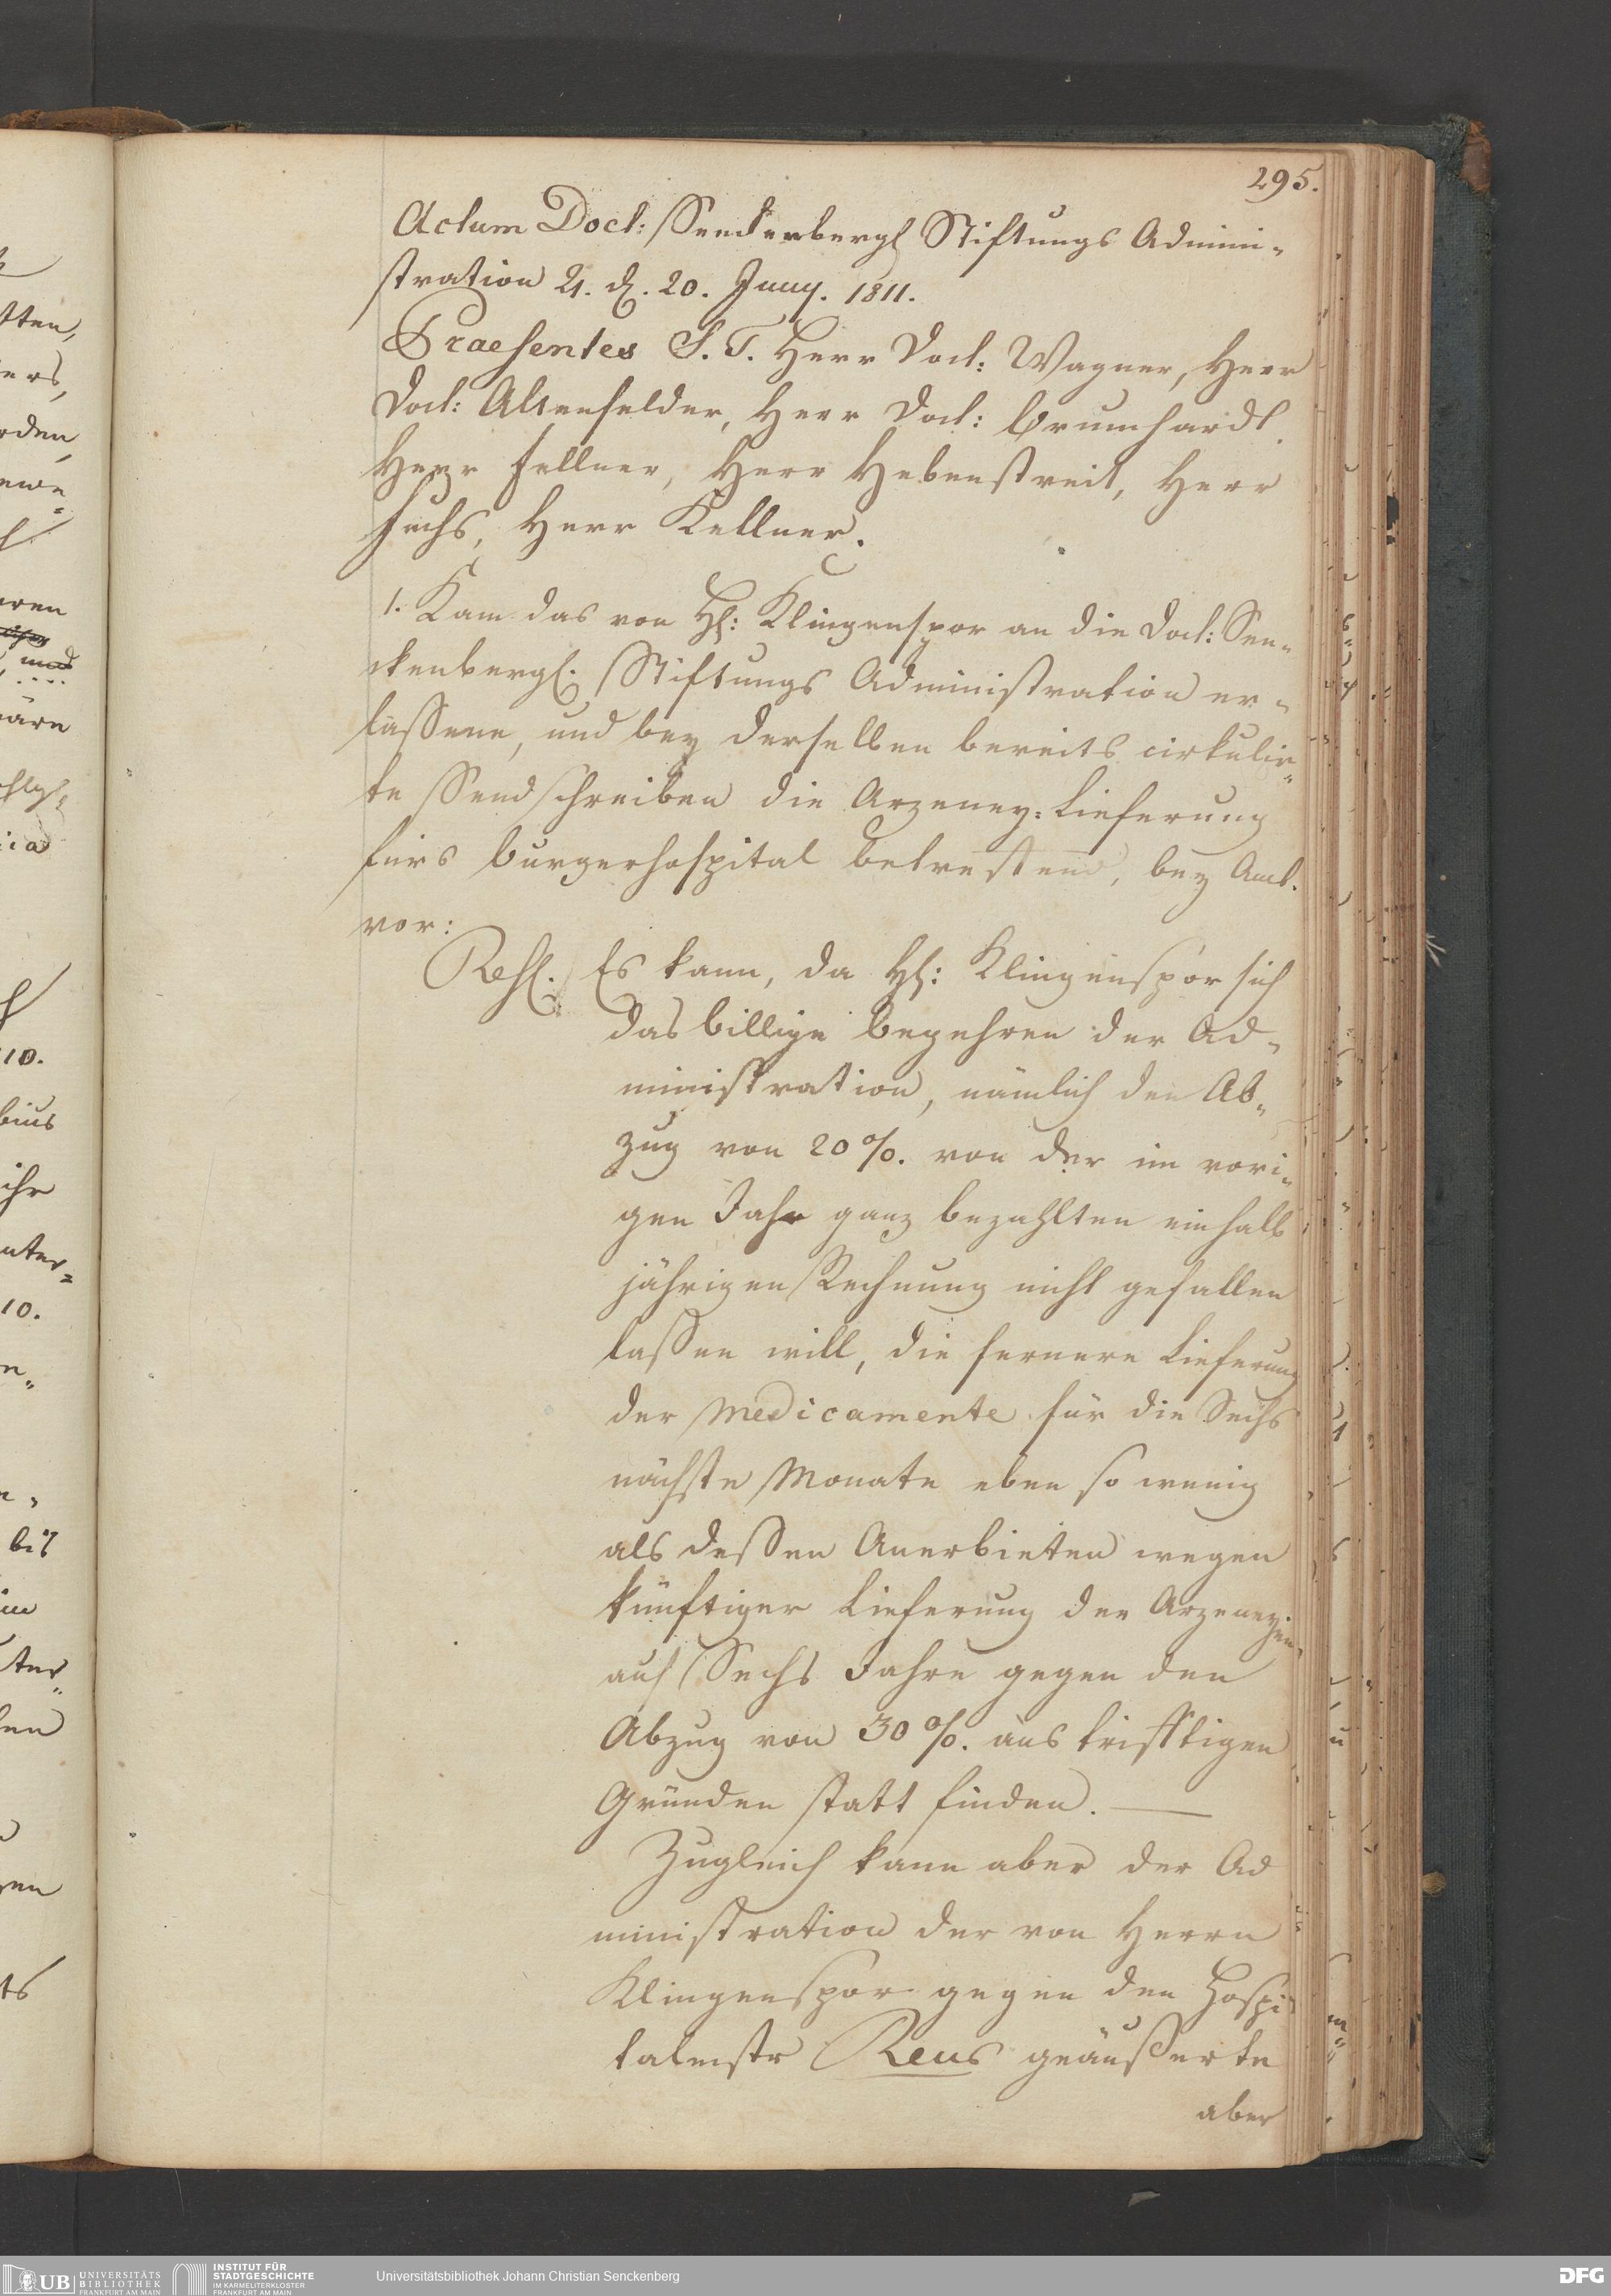 295.
Actum Doct: Senckenbergl Stiftungs Admini-
stration 21. d. 20. Juny. 1811.
Praesentes S. T. Herr Doct: Wagner, Herr
Doct: Altenfelder, Herr Doct: Grumhardt
Herr Fellner, Herr Hebenstreit, Herr
Fuchs, Herr Kellner.
1. Kam das von H: Klingenspor an die Doct: Sen-
ckenbergl. Stiftungs Administration er-
lassene, und bey derselben bereits cirkulir-
te Sendschreiben die Arzeney-Lieferung
fürs Burgerhospital betreffend, bey Amt
vor:
Resl. Es kann, da H: Klingenspor sich
das billige Begehren der Ad-
ministration, nämlich den Ab-
zug von 20 %. von der im vori-
gen Jahr ganz bezahlten einhalb
jährigen Rechnung nicht gefallen
lassen will, die fernere Lieferung
der Medicamente für die Sechs
nächste Monate eben so wenig
als dessen Anerbieten wegen
künftiger Lieferung der Arzeneyen
auf Sechs Jahre gegen den
Abzug von 30 %. aus trifftigen
Gründen statt finden.
Zugleich kann aber der Ad
ministration der von Herrn
Klingenspor gegen den Hospi
talmstr Reus geäußerte
aber
UB UNIVERSITÄTS
BIBLIOTHEK
FRANKFURT AM MAIN
INSTITUT FÜR
STADTGESCHICHTE
IM KARMELITERKLOSTER
FRANKFURT AM MAIN
Universitätsbibliothek Johann Christian Senckenberg
DFG